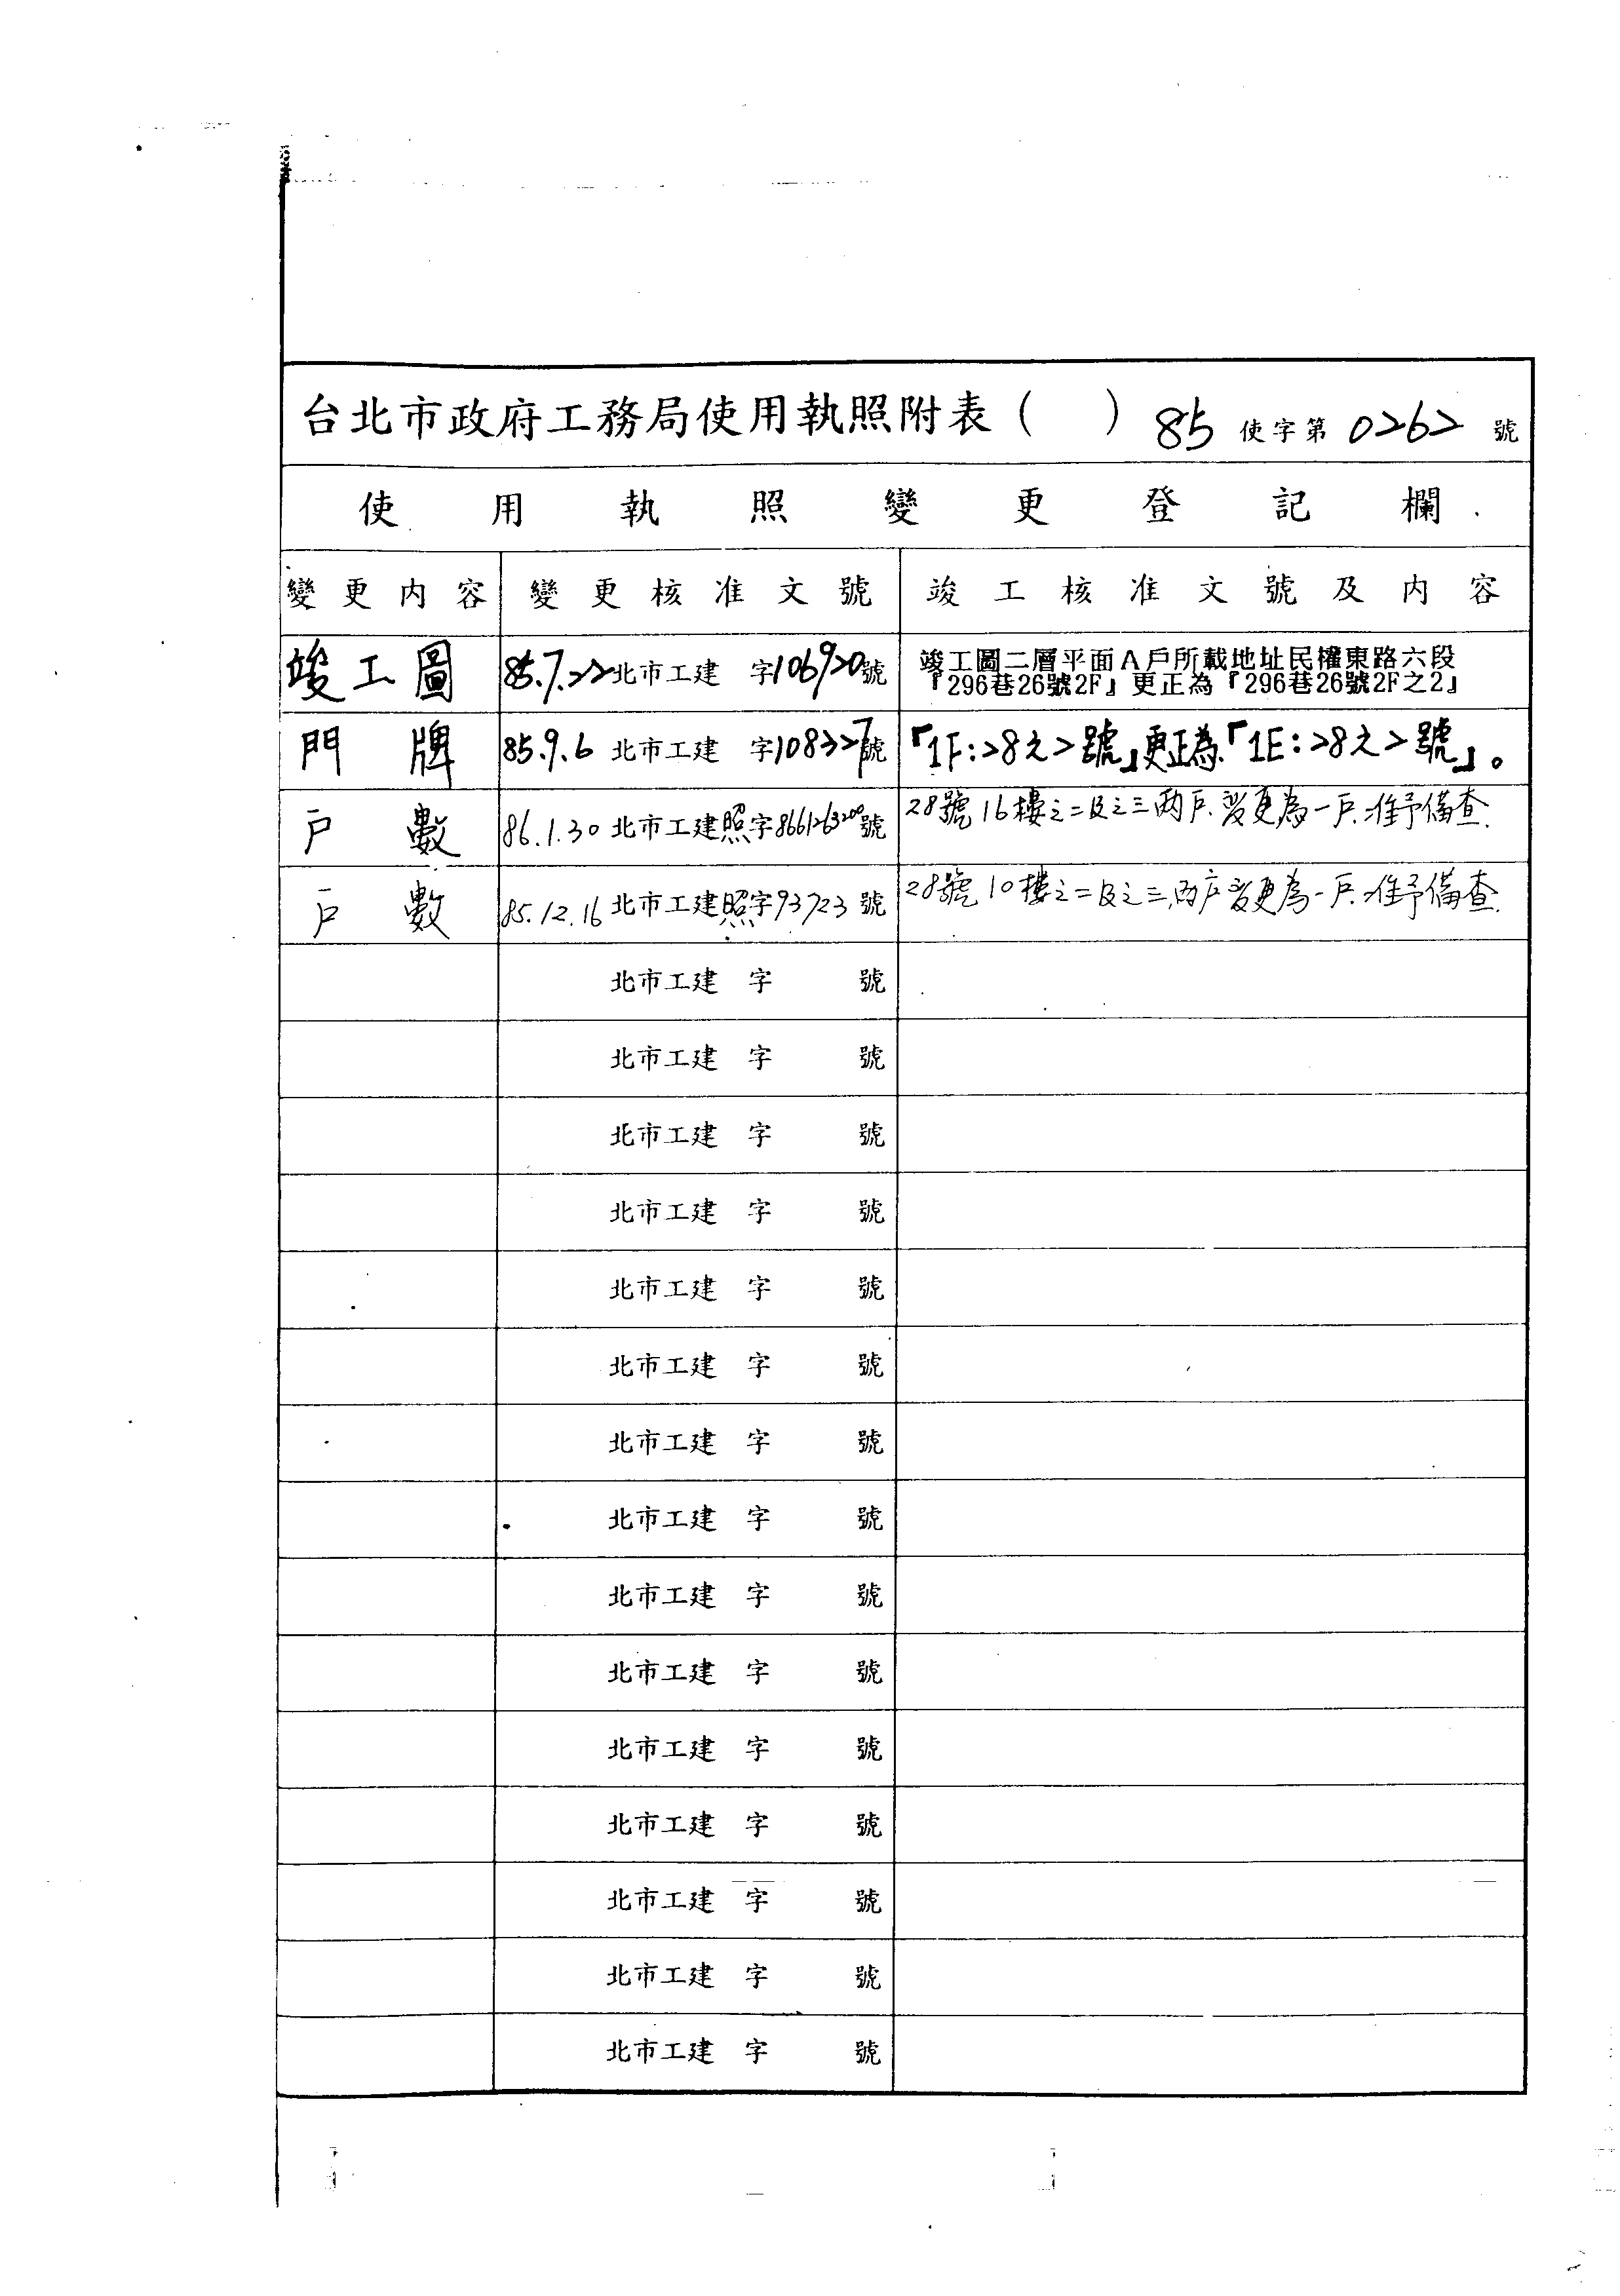 台北市政府工務局使用執照附表(　) 85 使字第 0262 號
使用執照變更登記欄
變更內容 變更核准文號 竣工核准文號及內容
竣工圖 85.7.22 北市工建 字106920號 竣工圖二層平面A戶所載地址民權東路六段
『296巷26號2F』更正為『296巷26號2F之2』
門牌 85.9.6 北市工建 字108327號 「1F:28之2號」更正為「1E:28之2號」。
戶數 86.1.30 北市工建照字8661263200號 28號16樓之二及之三兩戶.變更為一戶.准予備查.
戶數 85.12.16 北市工建照字93723號 28號10樓之二及之三,兩戶變更為一戶.准予備查.
北市工建 字 號
北市工建 字 號
北市工建 字 號
北市工建 字 號
北市工建 字 號
北市工建 字 號
北市工建 字 號
北市工建 字 號
北市工建 字 號
北市工建 字 號
北市工建 字 號
北市工建 字 號
北市工建 字 號
北市工建 字 號
北市工建 字 號